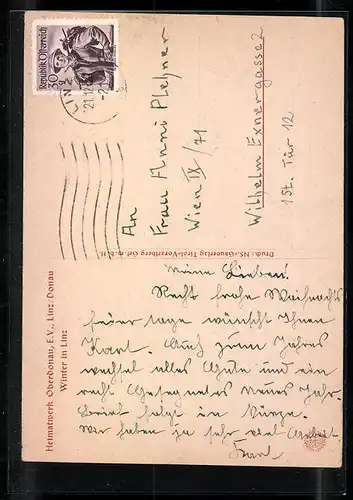 Republik Österreich
30 g
LINZ
21.12
An
Frau Anni Pleßner
Wien IX/71
Wilhelm Exnergasse 2
1 St. Tür 12
Druck: NS.-Gauverlag Tirol-Vorarlberg G.m.b.H.
Heimatwerk Oberdonau, E.V., Linz/Donau
Winter in Linz
Meine Lieben!
Recht frohe Weihnachts
feiertage wünscht Ihnen
Karl. Auch zum Jahres
wechsel alles Gute und ein
recht Gesegnetes Neues Jahr.
Brief folgt in Kürze.
Wir haben ja sehr viel Arbeit
Karl